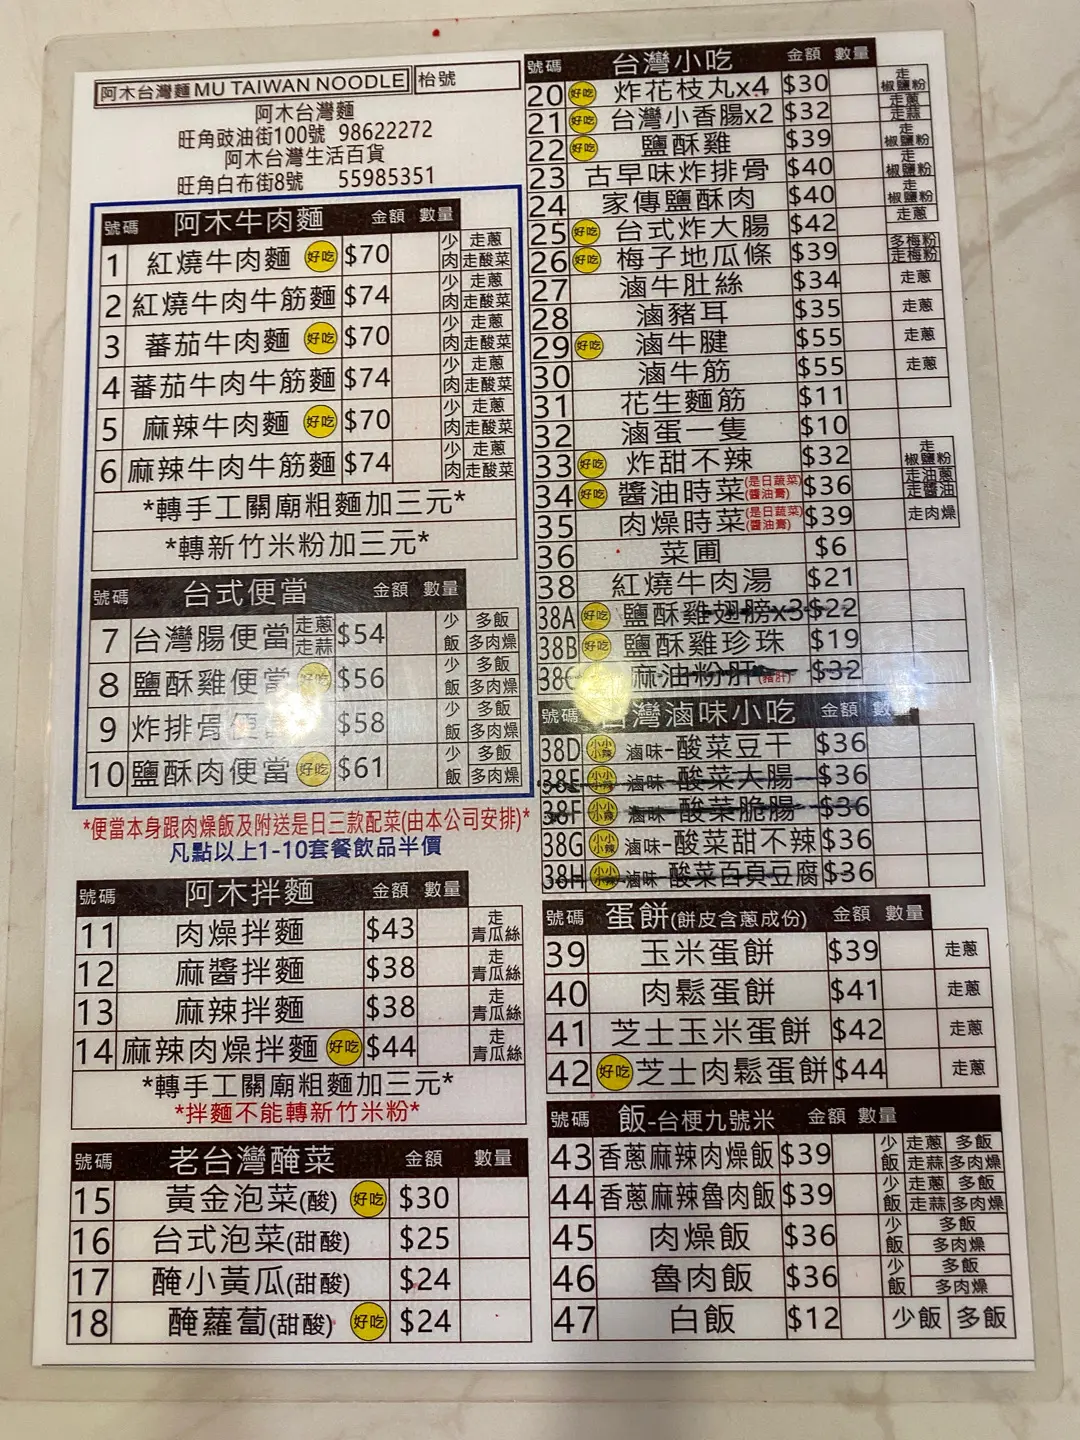 阿木台灣麵 MU TAIWAN NOODLE 枱號
阿木台灣麵
旺角豉油街100號 98622272
阿木台灣生活百貨
旺角白布街8號 55985351
號碼 阿木牛肉麵 金額 數量
1 紅燒牛肉麵 好吃 $70 少肉 走蔥 走酸菜
2 紅燒牛肉牛筋麵 $74 少肉 走蔥 走酸菜
3 蕃茄牛肉麵 好吃 $70 少肉 走蔥 走酸菜
4 蕃茄牛肉牛筋麵 $74 少肉 走蔥 走酸菜
5 麻辣牛肉麵 好吃 $70 少肉 走蔥 走酸菜
6 麻辣牛肉牛筋麵 $74 少肉 走蔥 走酸菜
*轉手工關廟粗麵加三元*
*轉新竹米粉加三元*
號碼 台式便當 金額 數量
7 台灣腸便當 走蔥 走蒜 $54 少飯 多飯 多肉燥
8 鹽酥雞便當 好吃 $56 少飯 多飯 多肉燥
9 炸排骨便當 $58 少飯 多飯 多肉燥
10 鹽酥肉便當 好吃 $61 少飯 多飯 多肉燥
*便當本身跟肉燥飯及附送是日三款配菜(由本公司安排)*
凡點以上1-10套餐飲品半價
號碼 阿木拌麵 金額 數量
11 肉燥拌麵 $43 走青瓜絲
12 麻醬拌麵 $38 走青瓜絲
13 麻辣拌麵 $38 走青瓜絲
14 麻辣肉燥拌麵 好吃 $44 走青瓜絲
*轉手工關廟粗麵加三元*
*拌麵不能轉新竹米粉*
號碼 老台灣醃菜 金額 數量
15 黃金泡菜(酸) 好吃 $30
16 台式泡菜(甜酸) $25
17 醃小黃瓜(甜酸) $24
18 醃蘿蔔(甜酸) 好吃 $24
號碼 台灣小吃 金額 數量
20 好吃 炸花枝丸x4 $30 走椒鹽粉
21 好吃 台灣小香腸x2 $32 走蔥 走蒜
22 好吃 鹽酥雞 $39 走椒鹽粉
23 古早味炸排骨 $40 走椒鹽粉
24 家傳鹽酥肉 $40 走椒鹽粉
25 好吃 台式炸大腸 $42 走蔥
26 好吃 梅子地瓜條 $39 多梅粉 走梅粉
27 滷牛肚絲 $34 走蔥
28 滷豬耳 $35 走蔥
29 好吃 滷牛腱 $55 走蔥
30 滷牛筋 $55 走蔥
31 花生麵筋 $11
32 滷蛋一隻 $10
33 好吃 炸甜不辣 $32 走椒鹽粉
34 好吃 醬油時菜(是日蔬菜)(醬油膏) $36 走油蔥 走醬油
35 肉燥時菜(是日蔬菜)(醬油膏) $39 走肉燥
36 菜圃 $6
38 紅燒牛肉湯 $21
38A 好吃 鹽酥雞翅膀x3 $22
38B 好吃 鹽酥雞珍珠 $19
38C 麻油粉肝(豬肝) $32
號碼 台灣滷味小吃 金額 數量
38D 小小辣 滷味-酸菜豆干 $36
38E 小小辣 滷味-酸菜大腸 $36
38F 小小辣 滷味-酸菜脆腸 $36
38G 小小辣 滷味-酸菜甜不辣 $36
38H 小小辣 滷味-酸菜百頁豆腐 $36
號碼 蛋餅(餅皮含蔥成份) 金額 數量
39 玉米蛋餅 $39 走蔥
40 肉鬆蛋餅 $41 走蔥
41 芝士玉米蛋餅 $42 走蔥
42 好吃 芝士肉鬆蛋餅 $44 走蔥
號碼 飯-台梗九號米 金額 數量
43 香蔥麻辣肉燥飯 $39 少飯 走蔥 多飯 走蒜 多肉燥
44 香蔥麻辣魯肉飯 $39 少飯 走蔥 多飯 走蒜 多肉燥
45 肉燥飯 $36 少飯 多飯 多肉燥
46 魯肉飯 $36 少飯 多飯 多肉燥
47 白飯 $12 少飯 多飯